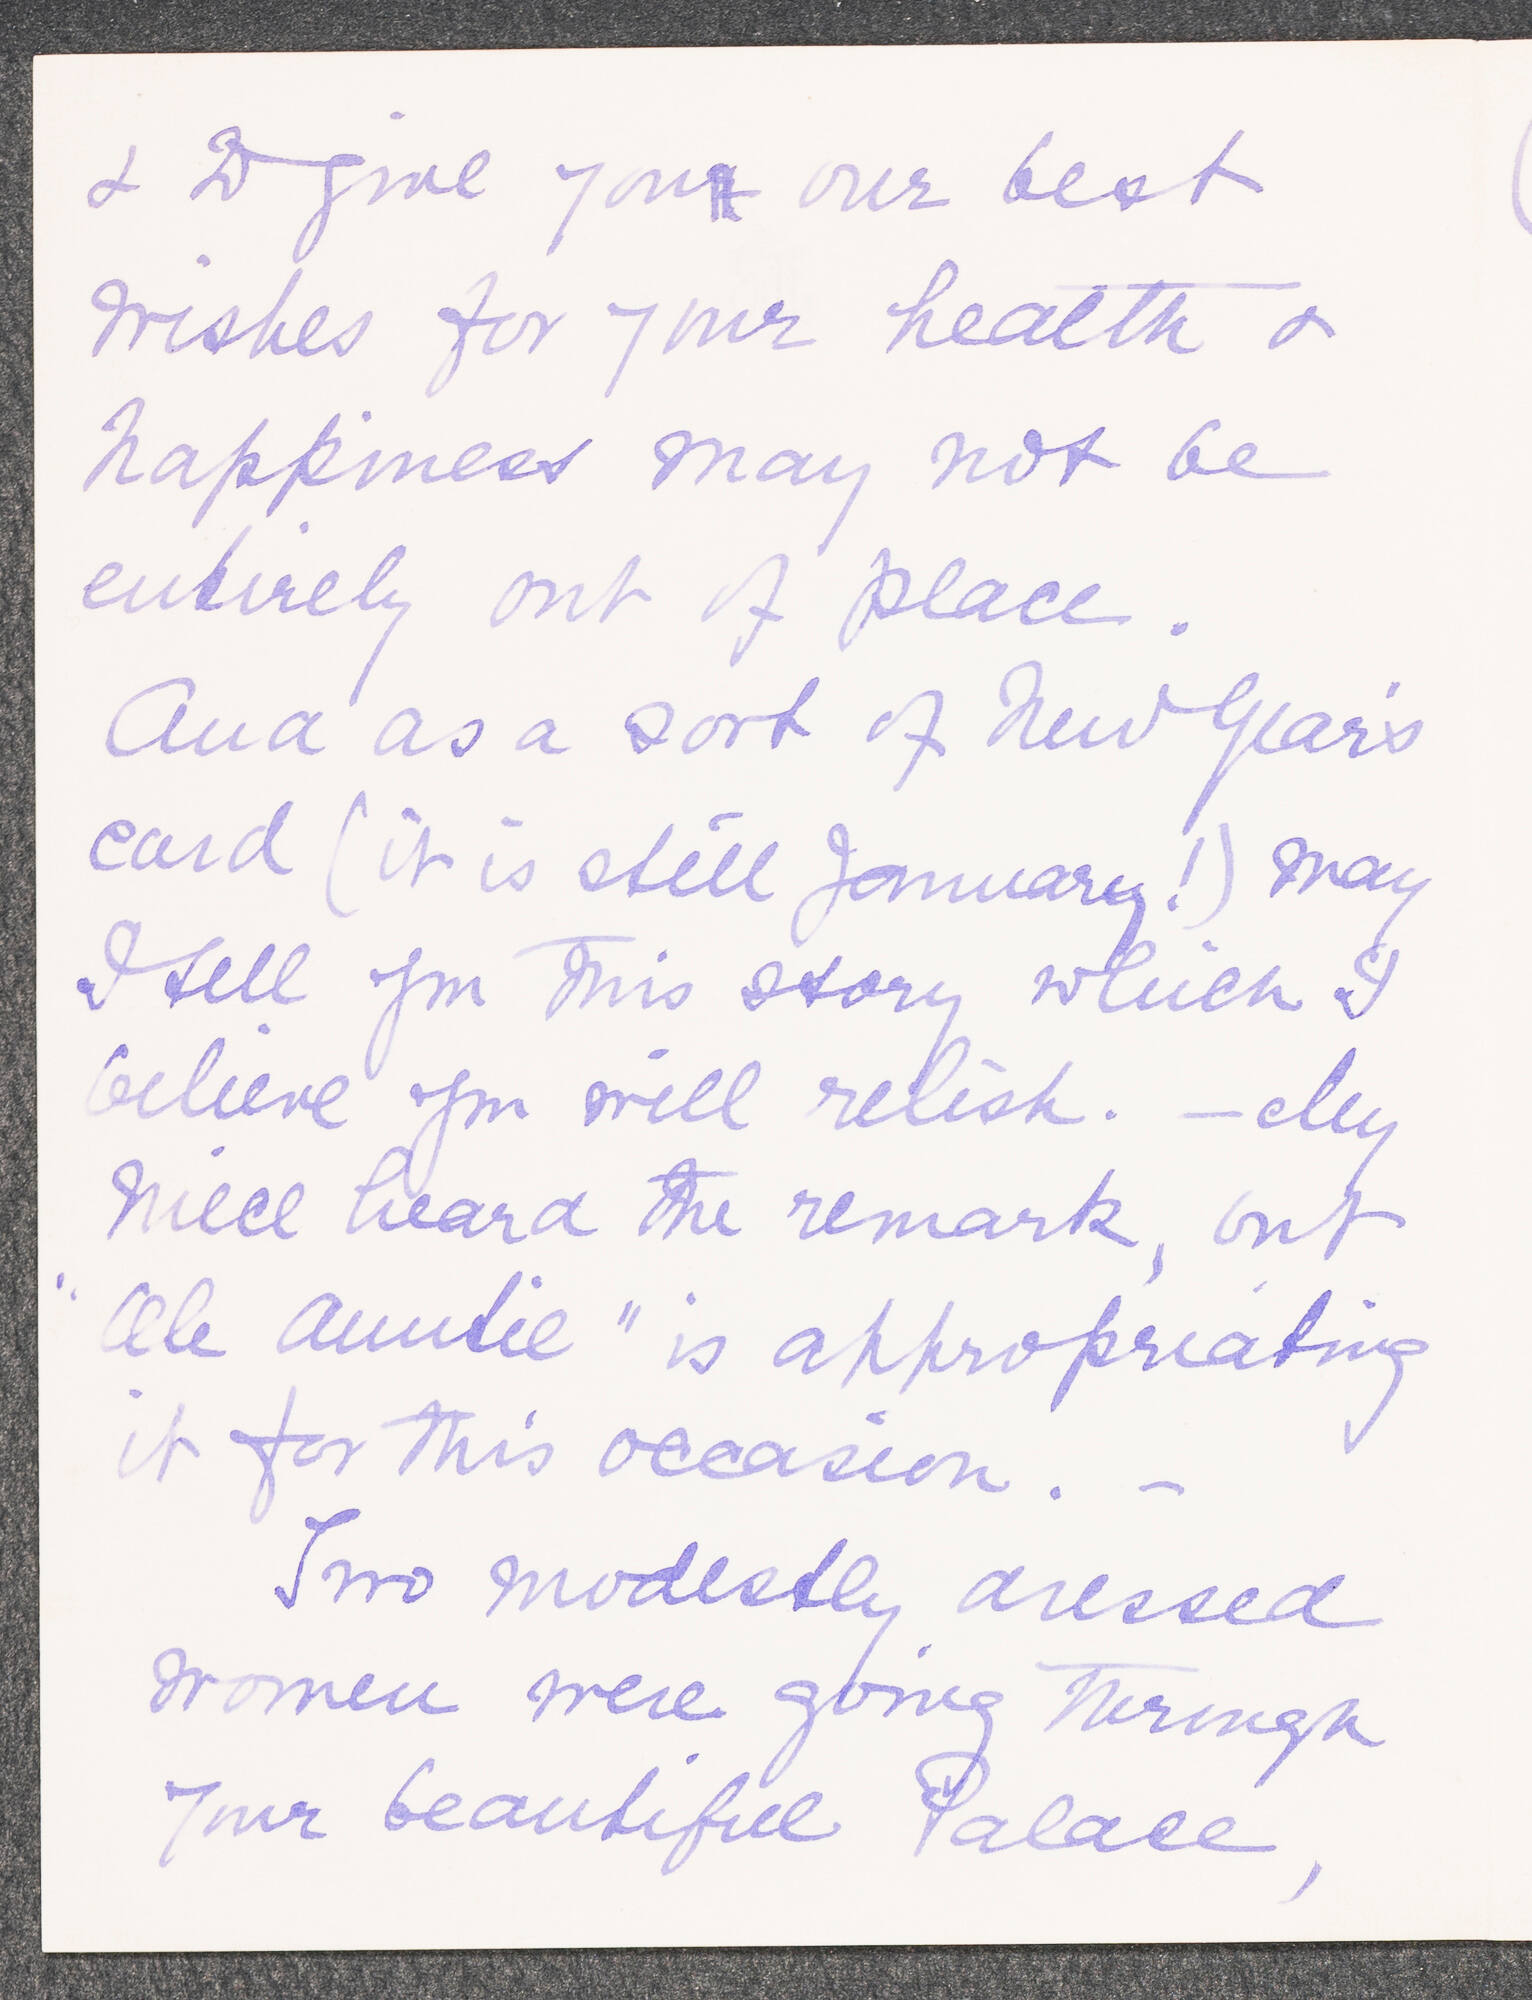 & to give you our best
wishes for your health &
happiness may not be
entirely out of place.
And as a sort of New Year's
card (it is still January!) may
I tell you this story which I
believe you will relish. – My
niece heard the remark, but
"Ole Auntie" is appropriating
it for this occasion. –
Two modestly dressed
women were going through
your beautiful Palace,